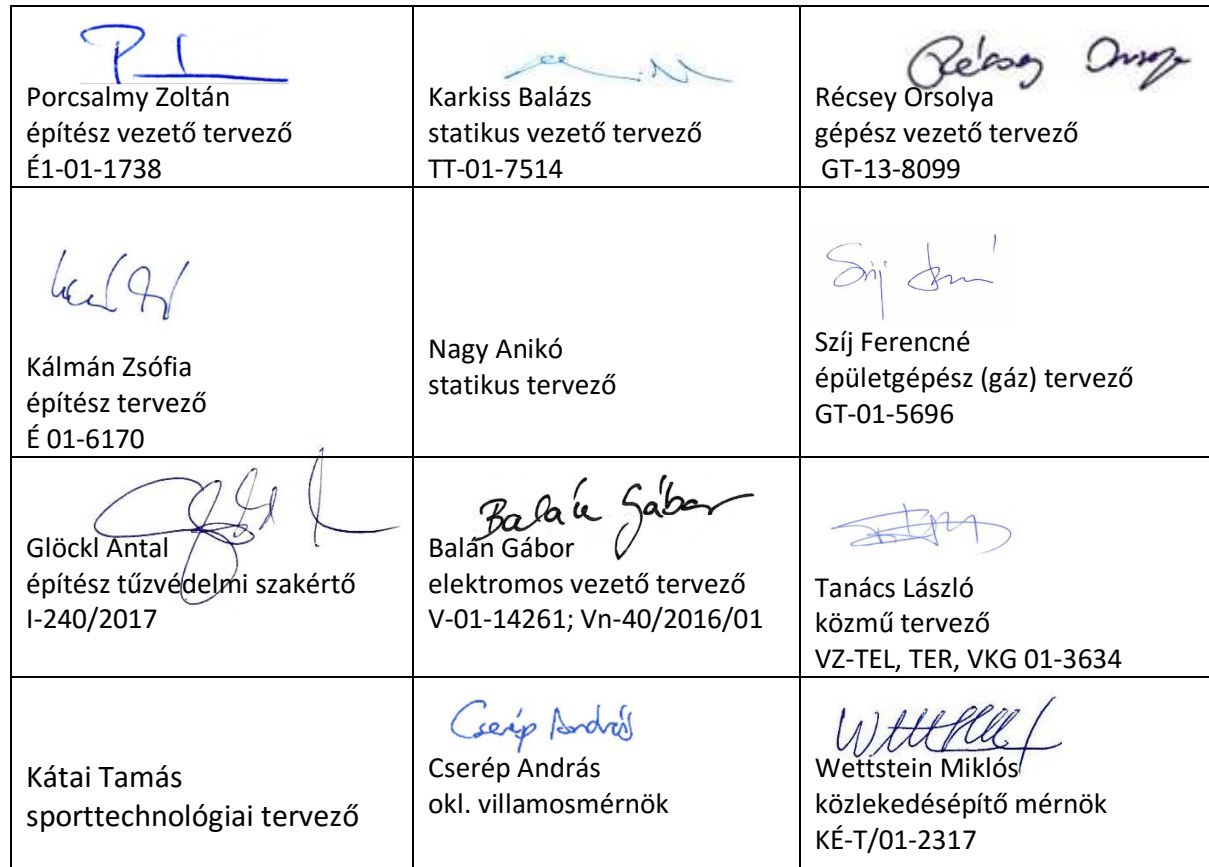 Porcsalmy Zoltán
építész vezető tervező
É1-01-1738
Karkiss Balázs
statikus vezető tervező
TT-01-7514
Récsey Orsolya
Récsey Orsolya
gépész vezető tervező
GT-13-8099
Kálmán Zsófia
építész tervező
É 01-6170
Nagy Anikó
statikus tervező
Szíj Ferencné
épületgépész (gáz) tervező
GT-01-5696
Glöckl Antal
építész tűzvédelmi szakértő
I-240/2017
Balán Gábor
Balán Gábor
elektromos vezető tervező
V-01-14261; Vn-40/2016/01
Tanács László
közmű tervező
VZ-TEL, TER, VKG 01-3634
Kátai Tamás
sporttechnológiai tervező
Cserép András
Cserép András
okl. villamosmérnök
Wettstein Miklós
közlekedésépítő mérnök
KÉ-T/01-2317